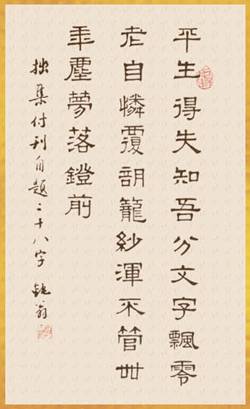 平生得失知吾分文字飄零
老自憐覆瓿籠紗渾不管卅
年塵夢落鐙前
拙集付刊自題二十八字 翁